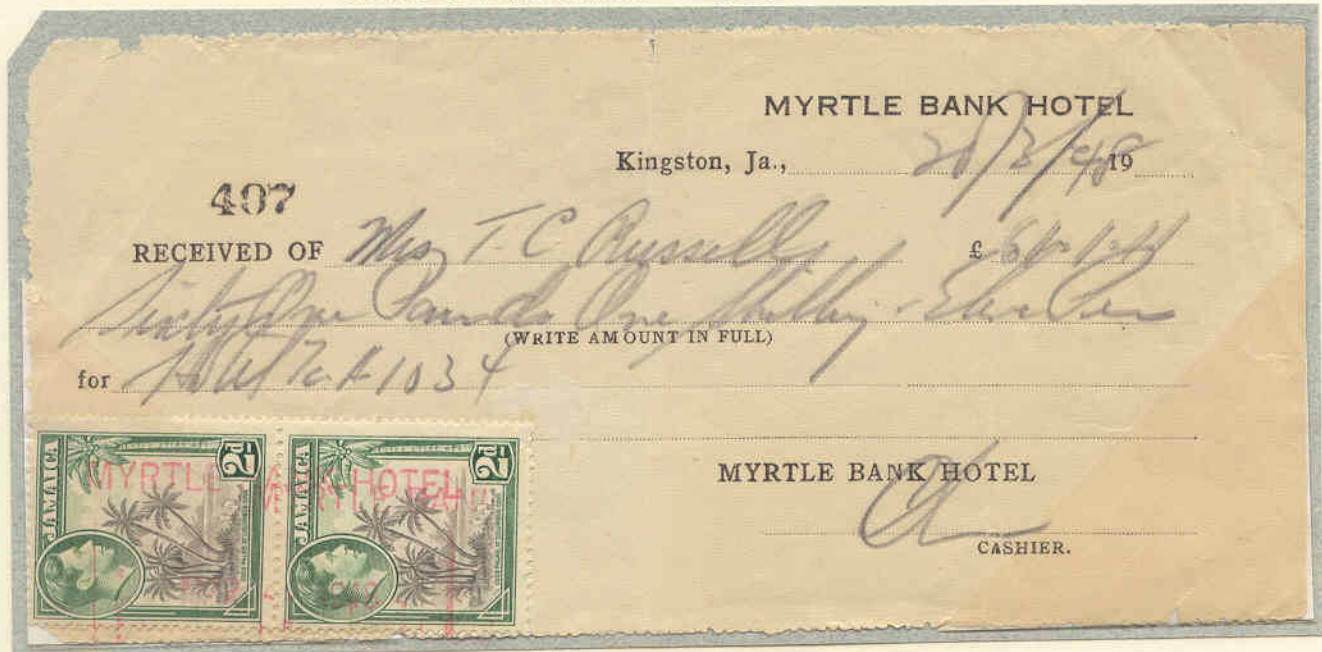 MYRTLE BANK HOTEL
Kingston, Ja., 20/3/48 19
407
RECEIVED OF Mrs T. C. Russell £ 61-1-11
Sixty One Pounds One Shilling - Elev Pen
(WRITE AMOUNT IN FULL)
for Hotel # 1034
MYRTLE BANK HOTEL
CASHIER.
JAMAICA 2d JAMAICA 2d
MYRTLE BANK HOTEL